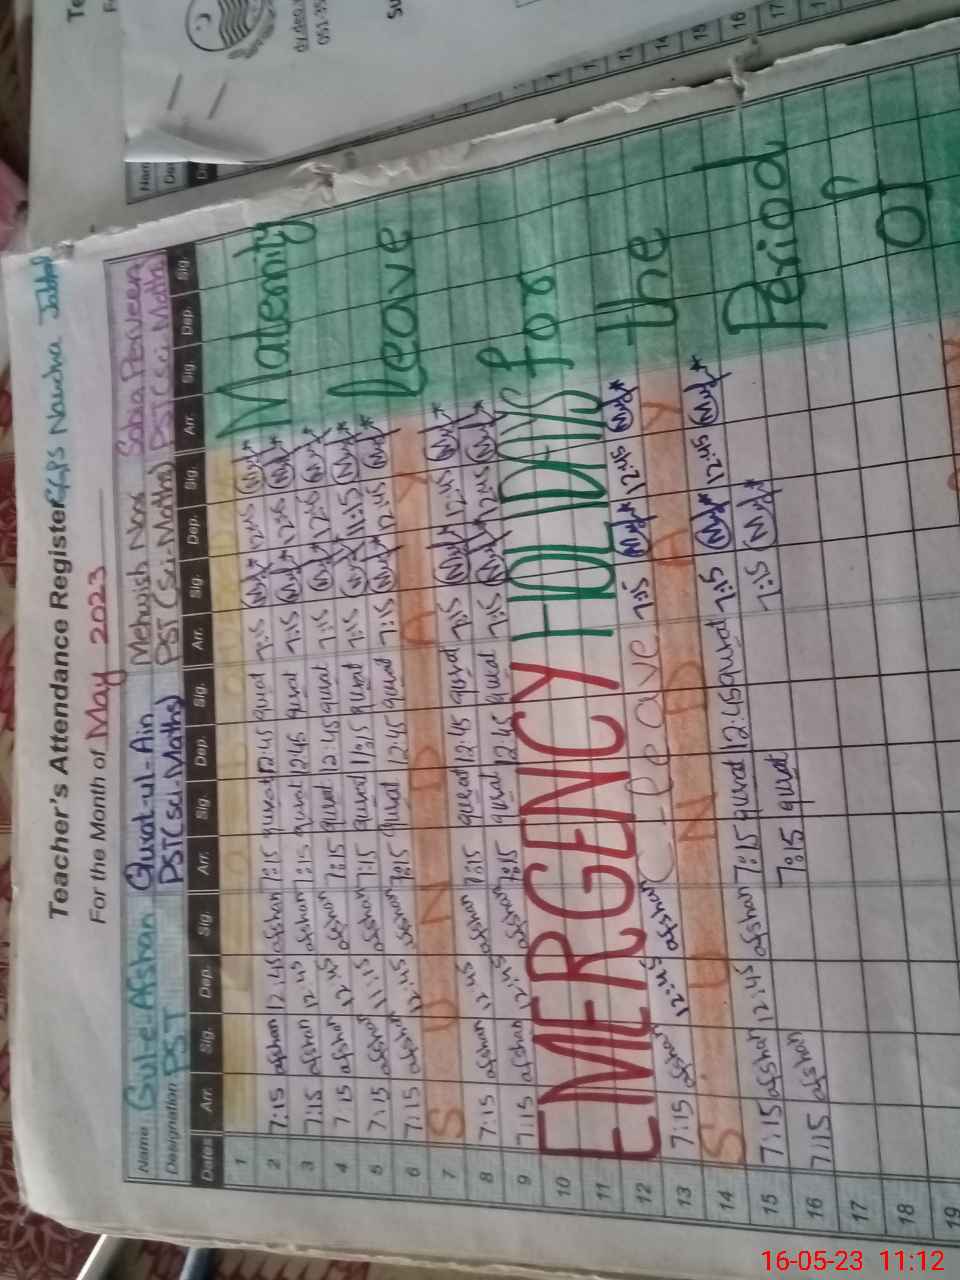 Teacher's Attendance Register GGPS Naucha
For the Month of May 2023
Name: Gul-e-Afshan Qurat-ul-Ain Mehwish Noor Sobia Perveen
Designation PST PST (sci-Maths) PST (Sci-Maths) PST Sci. Math
Dates Arr. Sig. Dep. Sig. Arr. Sig. Dep. Sig. Arr. Sig. Dep. Sig. Arr. Sig. Dep. Sig.
1
2 7:15 afshan 12:45 afshan 7:15 qurat 12:45 qurat 7:15 12:45
3 7:15 afshan 12:45 afshan 7:15 qurat 12:45 qurat 7:15 12:45
4 7:15 afshan 12:45 afshan 7:15 qurat 12:45 qurat 7:15 12:45
5 7:15 afshan 11:15 afshan 7:15 qurat 11:15 qurat 7:15 11:15
6 7:15 afshan 12:45 afshan 7:15 qurat 12:45 qurat 7:15 12:45
7 SUNDAY
8 7:15 afshan 12:45 afshan 7:15 qurat 12:45 qurat 7:15 12:45
9 7:15 afshan 12:45 afshan 7:15 qurat 12:45 qurat 7:15 12:45
10
11 EMERGENCY HOLIDAYS
12
13 7:15 afshan 12:45 afshan C-leave 7:15 12:45
14 SUNDAY
15 7:15 afshan 12:45 afshan 7:15 qurat 12:45 qurat 7:15 12:45
16 7:15 afshan 7:15 qurat 7:15
17
18
19
Maternity
Leave
for
the
Period
of
16-05-23 11:12